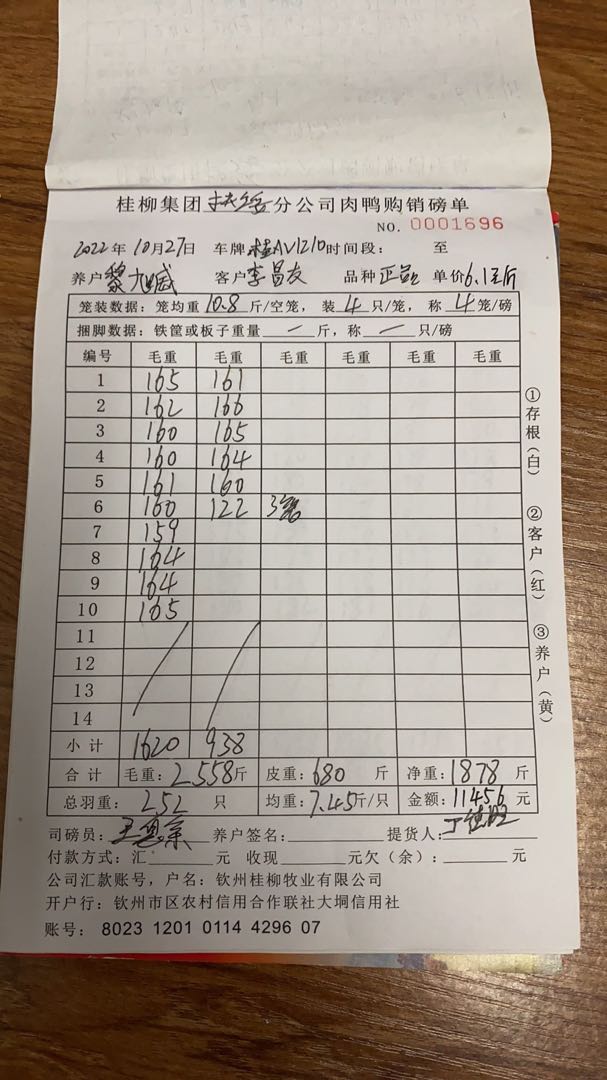 桂柳集团扶绥分公司肉鸭购销磅单
NO. 0001696
2022年10月27日 车牌桂AV1210时间段: 至
养户黎 客户李昌友 品种正品 单价6.1元/斤
笼装数据: 笼均重10.8斤/空笼, 装4只/笼, 称4笼/磅
捆脚数据: 铁筐或板子重量—斤, 称—只/磅
编号 毛重 毛重 毛重 毛重 毛重 毛重
1 165 161
2 162 166
3 160 165
4 160 164
5 161 160
6 160 122 3笼
7 159
8 164
9 164
10 165
11
12
13
14
小计 1620 938
合计 毛重:2558斤 皮重:680斤 净重:1878斤
总羽重: 252只 均重:7.45斤/只 金额:11456元
司磅员: 养户签名: 提货人:
付款方式: 汇 元 收现 元欠(余): 元
公司汇款账号, 户名: 钦州桂柳牧业有限公司
开户行: 钦州市区农村信用合作联社大垌信用社
账号: 8023 1201 0114 4296 07
①存根(白)
②客户(红)
③养户(黄)